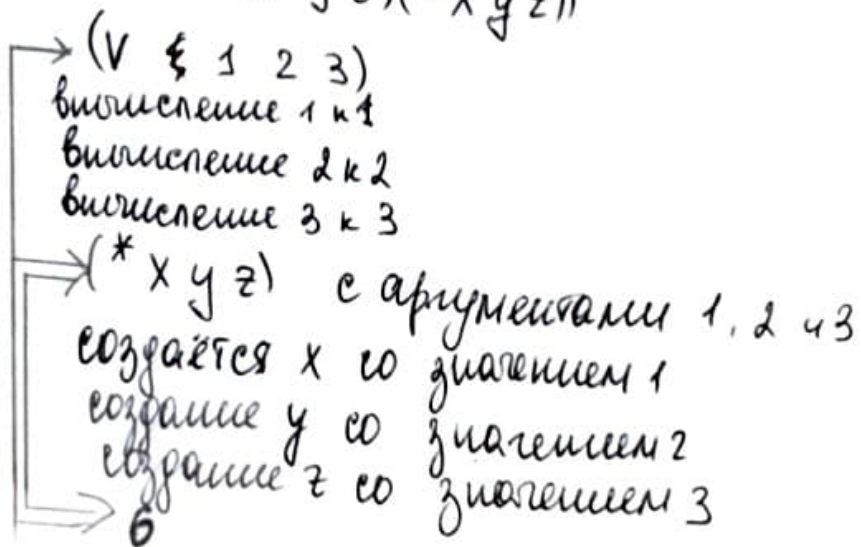 x y z))
(V 1 2 3)
вычисление 1 к 1
вычисление 2 к 2
вычисление 3 к 3
(* x y z) с аргументами 1, 2 и 3
создаётся x со значением 1
создание y со значением 2
создание z со значением 3
6